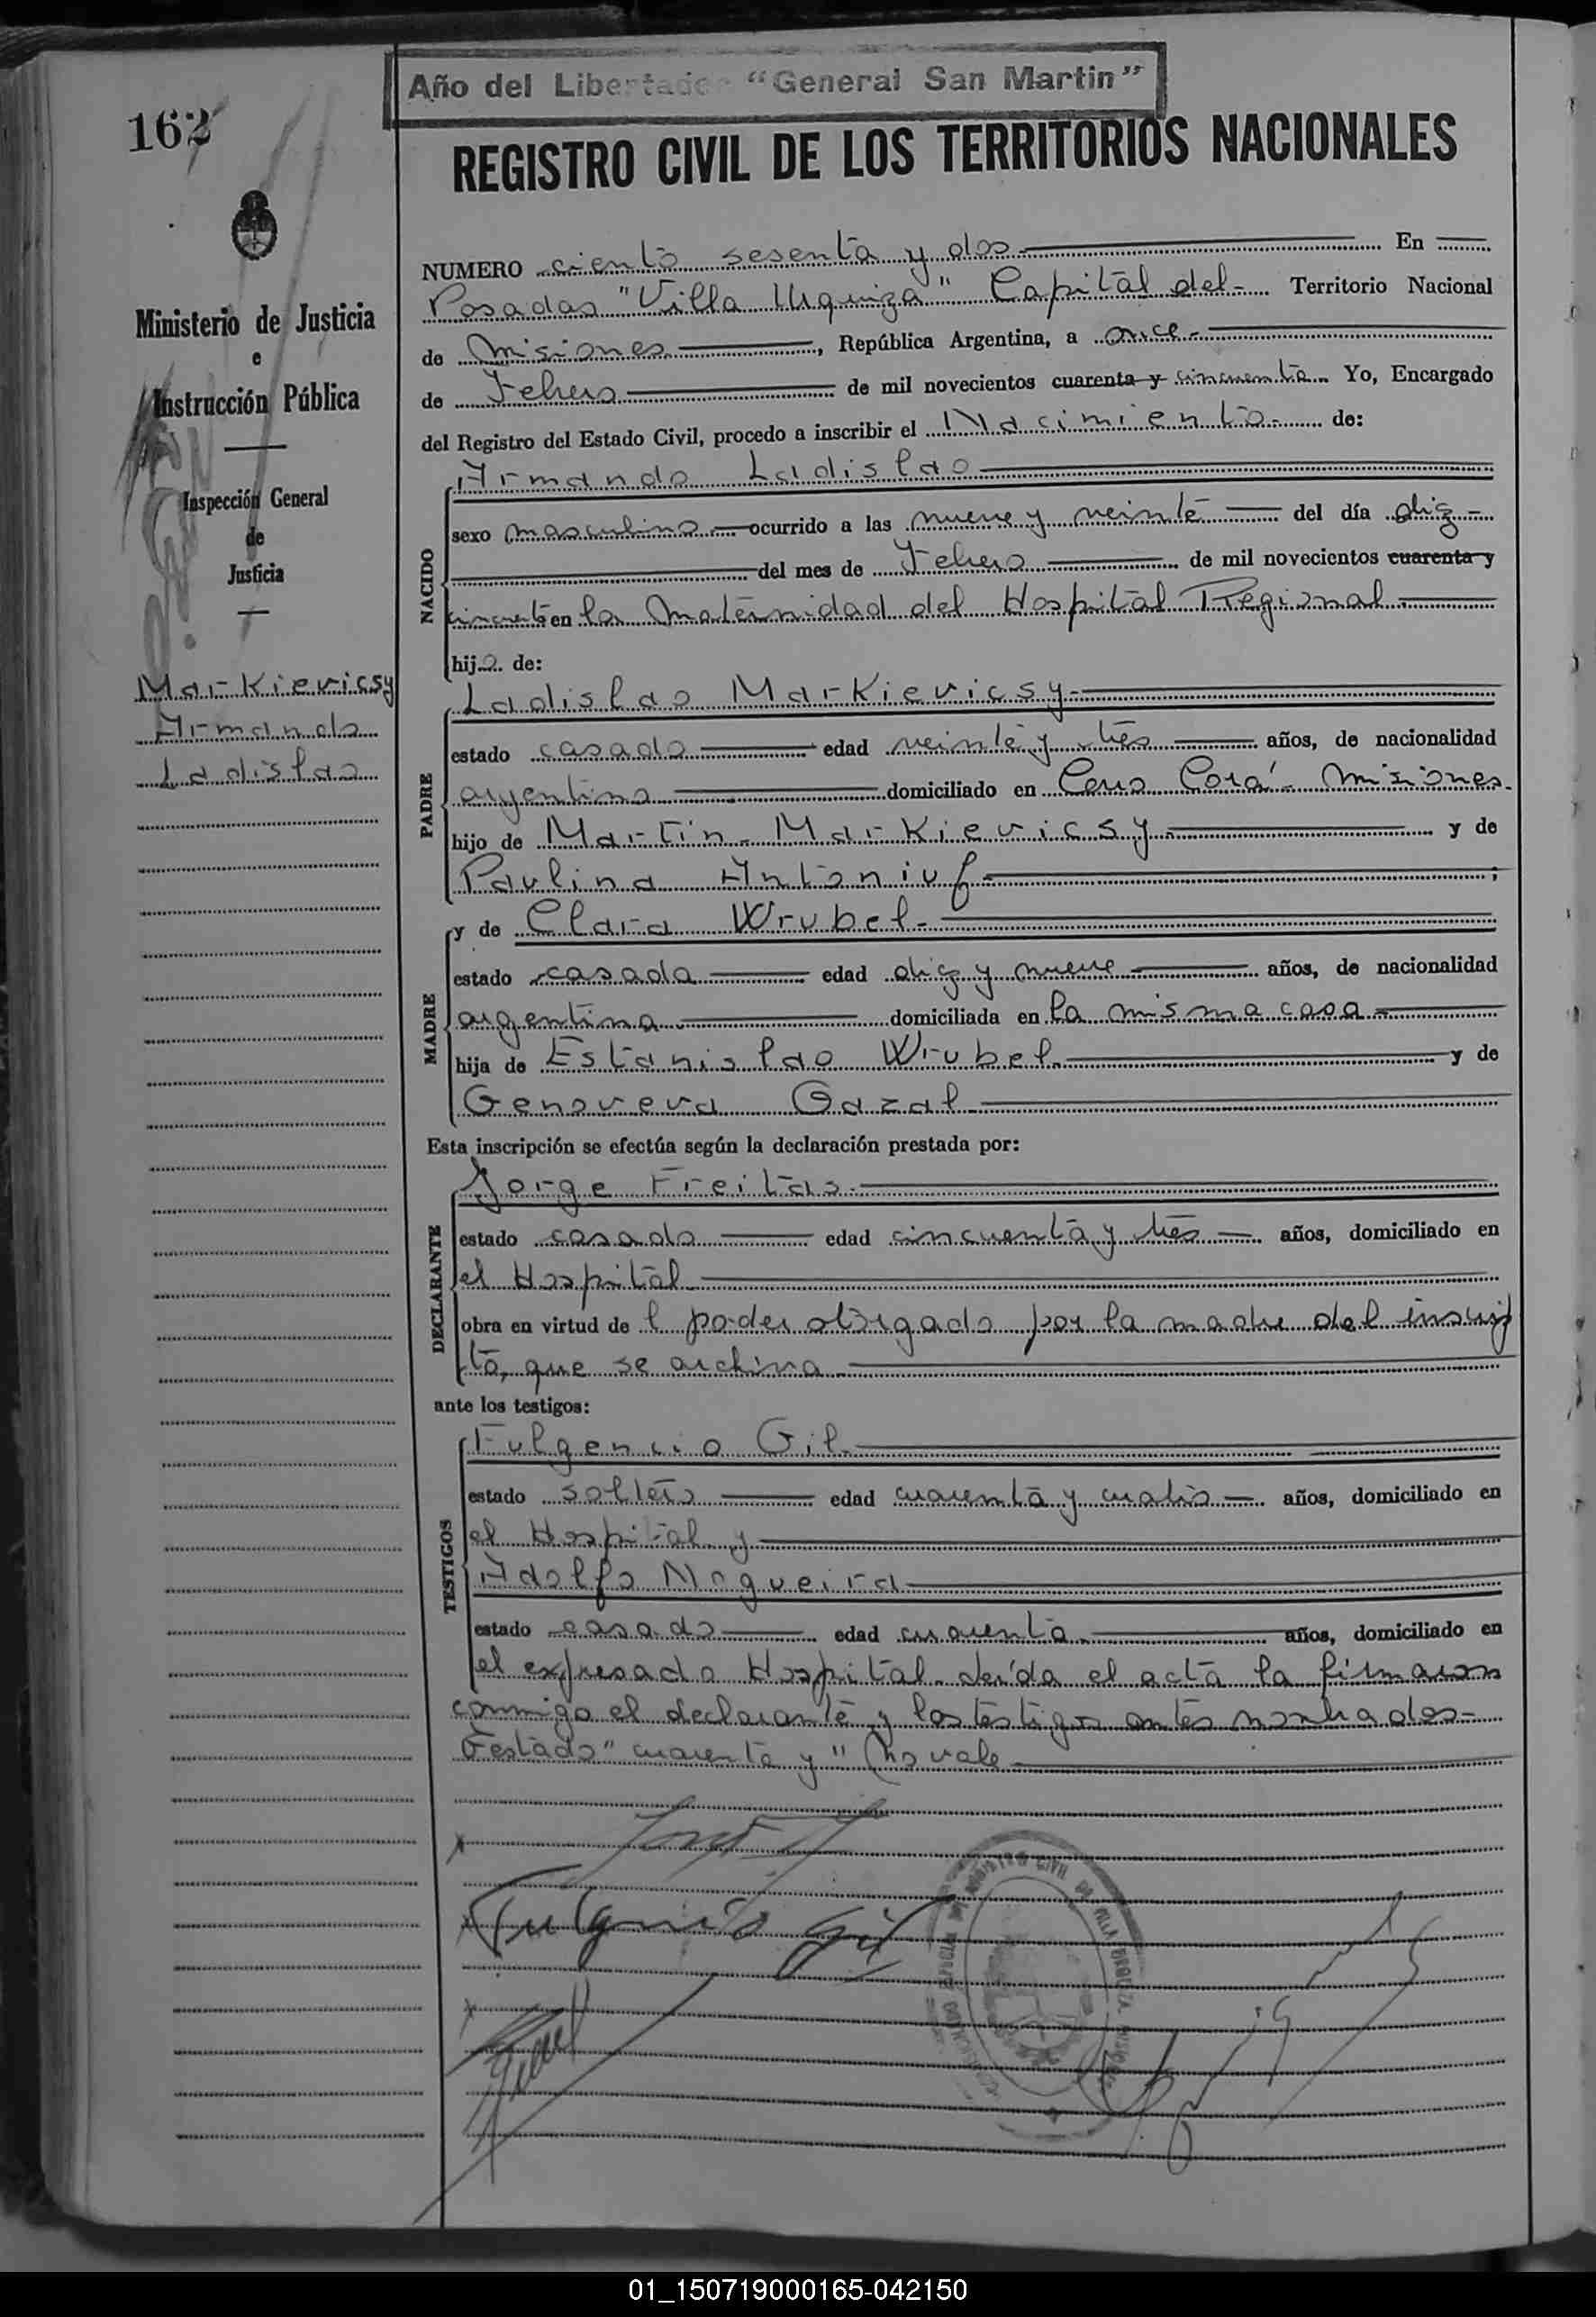 Año del Libertador "General San Martin"
162
REGISTRO CIVIL DE LOS TERRITORIOS NACIONALES
Ministerio de Justicia
e
Instrucción Pública
Inspección General
de
Justicia
Markievicsy
Armando
Ladislao
NUMERO ciento sesenta y dos En
Posadas "Villa Urquiza" Capital del Territorio Nacional
de Misiones, República Argentina, a once
de Febrero de mil novecientos cuarenta y cincuenta Yo, Encargado
del Registro del Estado Civil, procedo a inscribir el Nacimiento de:
NACIDO
Armando Ladislao
sexo masculino ocurrido a las nueve y veinte del día diez
del mes de Febrero de mil novecientos cuarenta y
cincuenta en la Maternidad del Hospital Regional
hijo de:
PADRE
Ladislao Markievicsy
estado casado edad veinte y tres años, de nacionalidad
argentino domiciliado en Cerro Corá Misiones
hijo de Martin Markievicsy y de
Paulina Antoniuf;
MADRE
y de Clara Wrubel
estado casada edad diez y nueve años, de nacionalidad
argentina domiciliada en la misma casa
hija de Estanislao Wrubel y de
Genoveva Gazal
Esta inscripción se efectúa según la declaración prestada por:
DECLARANTE
Jorge Freitas
estado casado edad cincuenta y tres años, domiciliado en
el Hospital
obra en virtud de l poder otorgado por la madre del inscrip
to, que se archiva
ante los testigos:
TESTIGOS
Fulgencio Gil
estado soltero edad cuarenta y cuatro años, domiciliado en
el Hospital y
Adolfo Nogueira
estado casado edad cuarenta años, domiciliado en
el expresado Hospital. Leída el acta la firmaron
conmigo el declarante y los testigos antes nombrados
Testado "cuarenta y" No vale
Fulgencio Gil
01_150719000165-042150